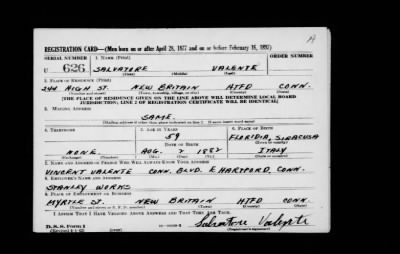 A
REGISTRATION CARD—(Men born on or after April 28, 1877 and on or before February 16, 1897)
SERIAL NUMBER 1. NAME (Print) ORDER NUMBER
U 626 SALVATORE VALENTE
(First) (Middle) (Last)
2. PLACE OF RESIDENCE (Print)
244 HIGH ST. NEW BRITAIN HTFD CONN.
(Number and street) (Town, township, village, or city) (County) (State)
[THE PLACE OF RESIDENCE GIVEN ON THE LINE ABOVE WILL DETERMINE LOCAL BOARD
JURISDICTION; LINE 2 OF REGISTRATION CERTIFICATE WILL BE IDENTICAL]
3. MAILING ADDRESS
SAME.
[Mailing address if other than place indicated on line 2. If same insert word same]
4. TELEPHONE 5. AGE IN YEARS 6. PLACE OF BIRTH
59 FLORIDIA, SIRACUSA
DATE OF BIRTH (Town or county)
NONE. AUG. 2 1882 ITALY
(Exchange) (Number) (Mo.) (Day) (Yr.) (State or country)
7. NAME AND ADDRESS OF PERSON WHO WILL ALWAYS KNOW YOUR ADDRESS
VINCENT VALENTE CONN. BLVD. E. HARTFORD, CONN.
8. EMPLOYER'S NAME AND ADDRESS
STANLEY WORKS
9. PLACE OF EMPLOYMENT OR BUSINESS
MYRTLE ST. NEW BRITAIN HTFD CONN.
(Number and street or R. F. D. number) (Town) (County) (State)
I AFFIRM THAT I HAVE VERIFIED ABOVE ANSWERS AND THAT THEY ARE TRUE.
D. S. S. Form 1 Salvatore Valente